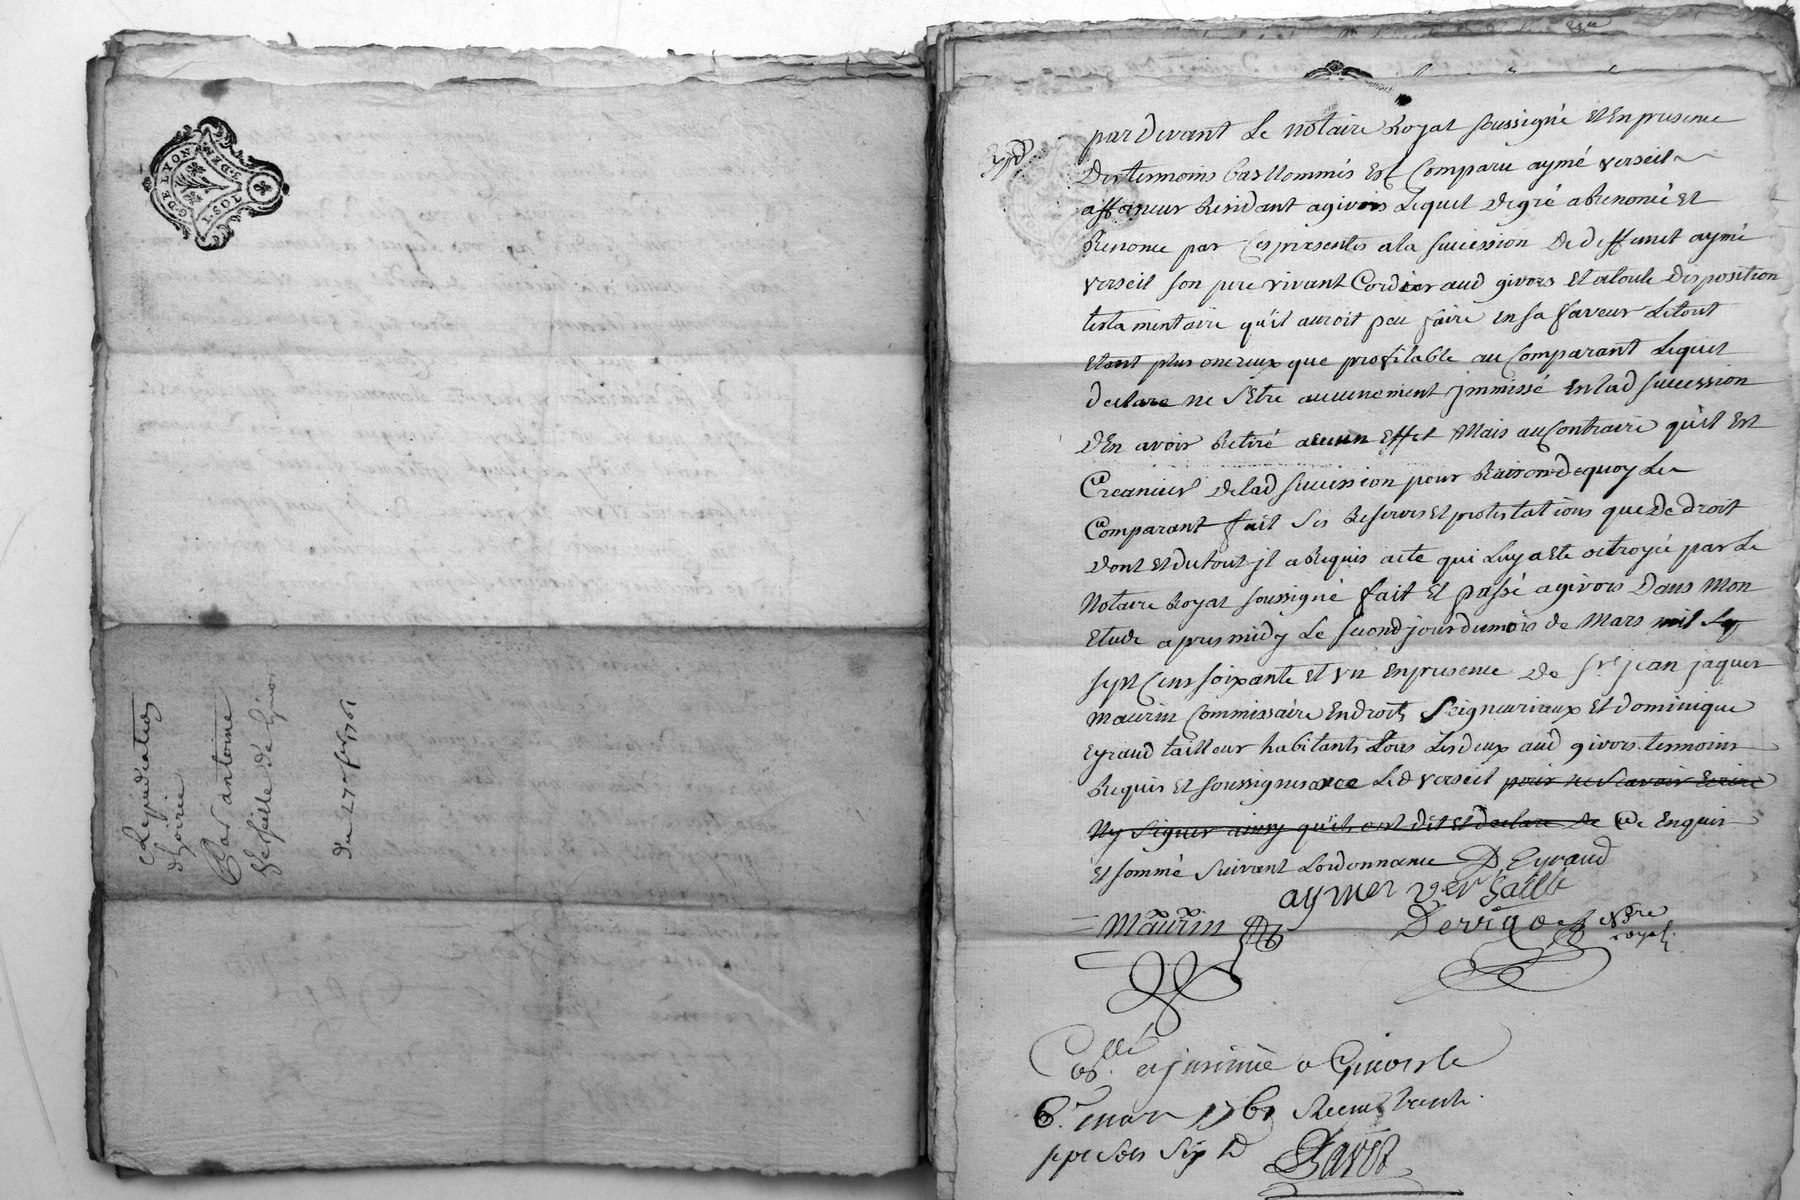 G. DE LYON
2. S. DEM
TOS. T
Repudiation
d'hoirie
Par antoine
Versaille de Givor
du 27e fev. 1761
Expd
par devant Le notaire Royal soussigné Et En presence
Des temoins bas Nommés Est Comparu aymé verseil
affaneur Residant a givors Lequel De gré a Renoncé Et
Renonce par Ces presentes a la succession De deffunct aymé
verseil son pere vivant Cordier aud givors Et a toute disposition
testamentaire qu'il auroit peu faire en sa faveur Le tout
Etant plus onereux que profitable au Comparant Lequel
declare ne s'Etre aucunement jmmissé En lad succession
d'En avoir Retiré aucun Effet Mais au Contraire qu'il Est
Creancier de lad succession pour Raison de quoy Le
Comparant fait ses Reserves et protestations que De droit
dont Et du tout jl a Requis acte qui Luy a Eté octroyé par Le
Notaire Royal soussigné fait Et passé a givors Dans Mon
Etude apres midy Le second jour du mois de Mars mil
sept Cens soixante Et un En presence De Sr jean jaques
Maurin Commissaire En droits Seigneuriaux Et dominique
Eyraud tailleur habitants tous Les deux aud givors temoins
Requis Et soussignes avec Led verseil pour ne Scavoir Ecrire
Ny Signer ainsy qu'ils ont dit Et declare de De Enquis
Et sommé suivant Lordonnance D Eyraud
aymer versaille
Maurin
Derigo Nore
royal
Collé a Givors le
6e mars 1761
sept sols six d